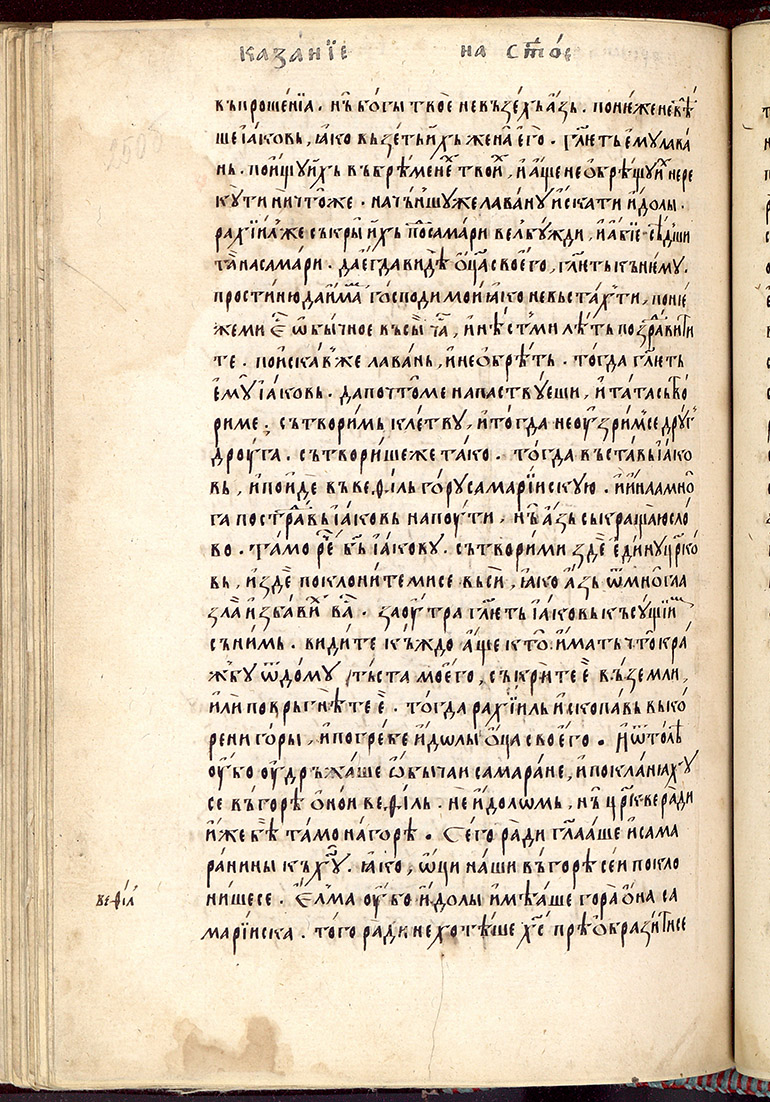 Каза́нїе на ст҃о́е
въпроше́нїа . нь̀ бо́гы твоѐ не възе́хь а҆́зь . поне́же не вѣ́
ше і҆а́ковь , ꙗ҆́ко възе́ть и҆̀хь жена̀ е҆го̀ . гл҃е́ть е҆му̀ лава́
нь . пои҆щу̀ и҆̀хь въ брѣ́менех твои́х , и҆ а҆́ще не ѡ҆брѣ́щу и҆̀х не ре
ку̀ ти ничто́же . наче́ньшу же лава́ну и҆ска́ти и҆́долы .
рахїи́л же съкры̀ и҆̀хь под самари велбу́жди , и҆ а҆́бїе сѣ́дши
та̀ на самари . да е҆гда̀ ви́дѣ ѻ҆ц҃а своего̀ , гл҃е́ть къ нѥму̀ .
прости́ ню да и҆́маш го́споди мои ꙗ҆́ко не въста́х ти , поне́
же ми е҆́с ѡ҆бы́чное въ сы̀и ча́с , и҆ нѣ́ст ми лѣ́ть поздра́вити
те . пои҆ска́в же лава́нь , и҆ не ѡ҆брѣ́ть . тогда̀ гл҃е́ть
е҆му̀ і҆а́ковь . да почто̀ ме напа́ствуеши , и҆ та́та сътво
ри ме ; сътвори́мь кле́тву , и҆ тогда̀ не ѹ҆́зрим се дру́г
дрѹ́га . сътвори́ше же та́ко . тогда̀ въста́вь і҆а́ко
вь , и҆ пои́де въ веѳи́ль го́ру самарїи́скую . и҆ и҆́на мно́
га постра́д а҆вь і҆а́ковь на пѹ́ти , нь̀ а҆́зь съкраща́ю сло́
во . та́мо ре́че бг҃ь і҆а́кову . сътвори́ ми здѐ е҆ди́ну цр҃ко́
вь , и҆ здѐ поклони́те ми се въси́ , ꙗ҆́ко а҆́зь ѿ мно́га
зла̀ и҆зба́вих ва́с . заѹ҆́тра гл҃е́ть і҆а́ковь къ су́щїим
съ ни́мь . ви́дите къждо а҆́ще кто̀ и҆́мать что̀ кра́
жбу ѿ до́му тъста мое҆го , съкры́те е҆̀ въ земли́ ,
и҆лѝ покрьгнѣ́те е҆̀ . тогда̀ рахїи́ль и҆скопа́вь въ ко́
рени го́ры , и҆ погре́бе и҆́долы ѻ҆ц҃а своего̀ . и҆ ѿто́лѣ
ѹ҆́бо ѹ҆дръжа́ше ѡ҆бы́чаи самара́не , и҆ покланꙗ́ху
се въ горѣ̀ ѻ҆́нои веѳи́ль . не и҆́доломь , нь̀ цр҃кве ра́ди
и҆́же бѣ̀ та́мо на горѣ̀ . Сего̀ ра́ди гл҃а́аше и҆ сама
ранины къ хс҃у . ꙗ҆́ко , ѻ҆ци на́ши въ горѣ̀ сеи покло
ни́ше се . Е҆лма ѹ҆́бо и҆́долы и҆мѣ́аше гора̀ ѻ҆́на са
марїи́ска . того̀ ра́ди не хотѣ́ше хс҃ прѣѡ҆брази́ти се
веѳіл